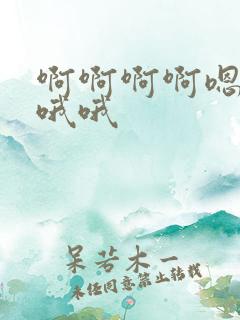 啊啊啊啊嗯
哦哦
呆若木一
未经同意禁止转载